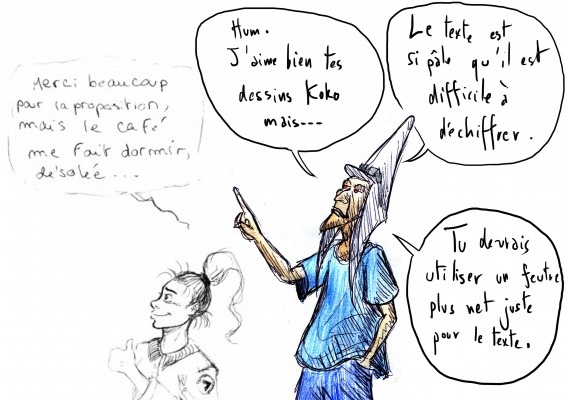 Merci beaucoup
pour la proposition,
mais le café
me fait dormir,
désolée....
Hum.
J'aime bien tes
dessins Koko
mais---
Le texte est
si pâle qu'il est
difficile à
déchiffrer.
Tu devrais
utiliser un feutre
plus net juste
pour le texte.